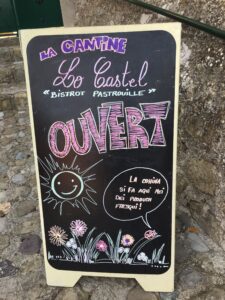 LA CANTINE
Lo Castel
"BISTROT PASTROUILLE"
OUVERT
LA COSINA
SI FA AQUÍ MEI
DEI PRODUCH
FRESQUI!